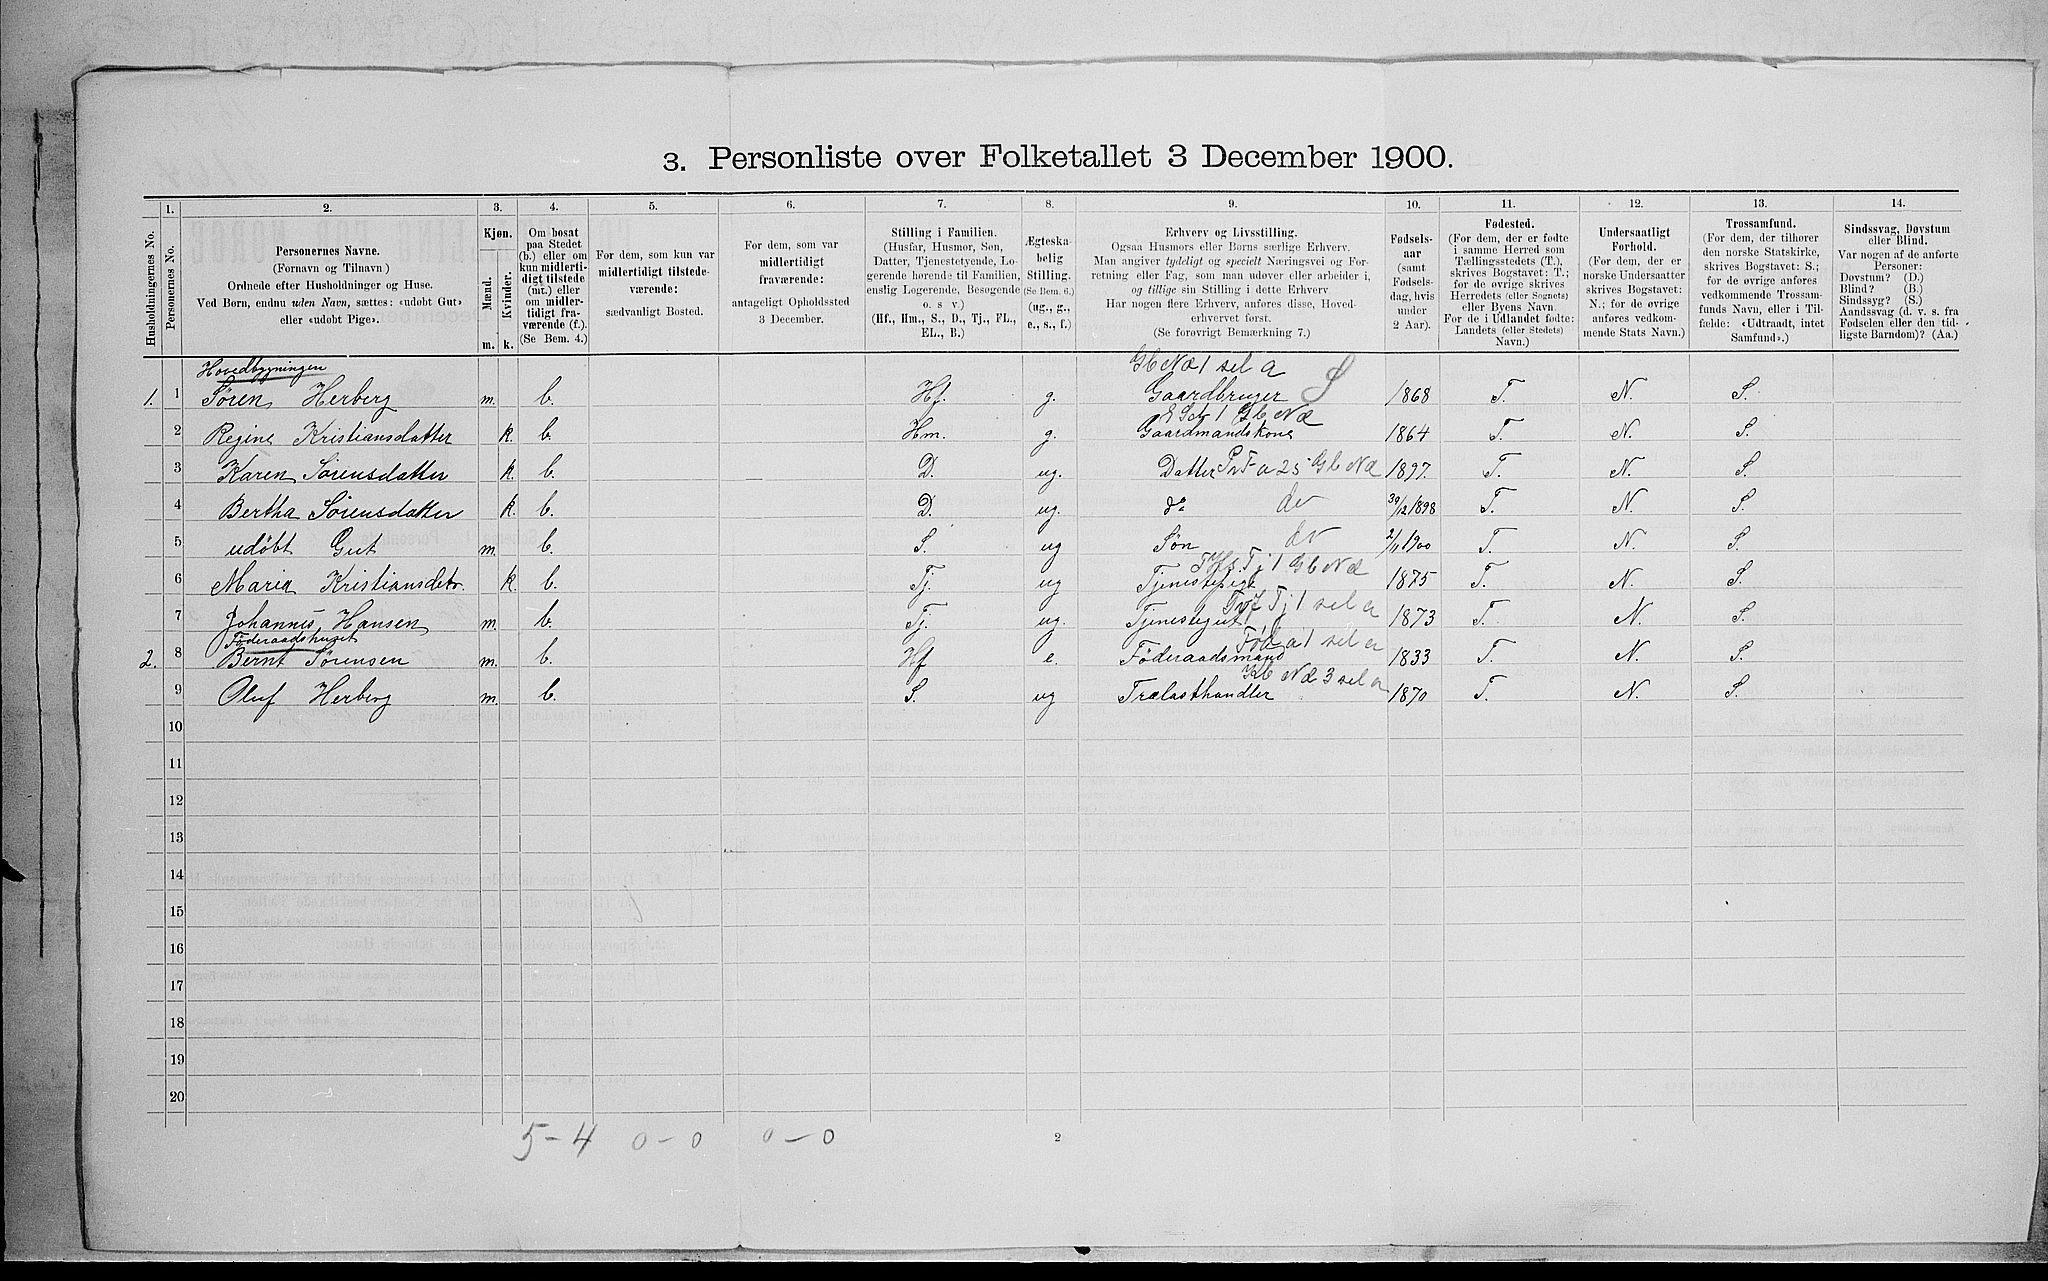 3. Personliste over Folketallet 3 December 1900.
Husholdningernes No.
1. Personernes No.
2. Personernes Navne.
(Fornavn og Tilnavn)
Ordnede efter Husholdninger og Huse.
Ved Børn, endnu uden Navn, sættes: «udobt Gut»
eller «udobt Pige».
3. Kjøn.
Mænd. Kvinder.
m. k.
4. Om bosat
paa Stedet
(b.) eller om
kun midlerti-
digt tilstede
(mt.) eller
om midler-
tidigt fra-
værende (f.).
(Se Bem. 4.)
5. For dem, som kun var
midlertidigt tilstede-
værende:
sædvanligt Bosted.
6. For dem, som var
midlertidigt
fraværende:
antageligt Opholdssted
3 December.
7. Stilling i Familien.
(Husfar, Husmor, Søn,
Datter, Tjenestetyende, Lo-
gerende hørende til Familien,
enslig Logerende, Besøgende
o. s v.)
(Hf., Hm., S., D., Tj., FL.,
EL., B.)
8. Ægteska-
belig
Stilling.
(Se Bem. 6.)
(ug., g.,
e., s., f.)
9. Erhverv og Livsstilling.
Ogsaa Husmors eller Børns særlige Erhverv.
Man angiver tydeligt og specielt Næringsvei og For-
retning eller Fag, som man udøver eller arbeider i,
og tillige sin Stilling i dette Erhverv
Har nogen flere Erhverv, anføres disse, Hoved-
erhvervet først.
(Se forøvrigt Bemærkning 7.)
10. Fødsels-
aar
(samt
Fødsels-
dag, hvis
under
2 Aar).
11. Fødested.
(For dem, der er fødte
i samme Herred som
Tællingsstedets (T.),
skrives Bogstavet: T.;
for de øvrige skrives
Herredets (eller Sognets)
eller Byens Navn.
For de i Udlandet fødte:
Landets (eller Stedets)
Navn.)
12. Undersaatligt
Forhold.
(For dem, der er
norske Undersaatter
skrives Bogstavet:
N.; for de øvrige
anføres vedkom-
mende Stats Navn.)
13. Trossamfund.
(For dem, der tilhører
den norske Statskirke,
skrives Bogstavet: S.;
for de øvrige anføres
vedkommende Trossam-
funds Navn, eller i Til-
fælde: «Udtraadt, intet
Samfund».)
14. Sindssvag, Døvstum
eller Blind.
Var nogen af de anførte
Personer:
Døvstum? (D.)
Blind? (B.)
Sindssyg? (S.)
Aandssvag (d. v. s. fra
Fødselen eller den tid-
ligste Barndom)? (Aa.)
Hovedbygningen Gb Næ 1 sel a
1. 1 Søren Herberg m. b. Hf. g. Gaardbruger S 1868 T. N. S.
1 Gb Næ
2 Regine Kristiansdatter k. b. Hm. g. Gaardmandskone 1864 T. N. S.
3 Karen Sørensdatter k. b. D. ug. Datter a 25 Gb Næ 1897. T. N. S.
4 Bertha Sørensdatter k. b. D. ug. do do 30/12 1898 T. N. S.
5 udöbt Gut m. b. S. ug Søn do 2/11 1900 T. N. S.
Tj 1 Gb Næ
6 Maria Kristiansdtr. k. b. Tj. ug Tjenestepige 1875 T. N. S.
Tj 1 sel a
7 Johannes Hansen m. b. Tj. ug. Tjenestegut 1873 T. N. S.
Föderaadshuset Fød a 1 sel a
2. 8 Bernt Sørensen m. b. Hf e. Föderaadsmand 1833 T. N. S.
Næ 3 sel a
9 Oluf Herberg m. b. S. ug Trælasthandler 1870 T. N. S.
10
11
12
13
14
15
16
17
18
19
20
5-4 0-0 0-0 2